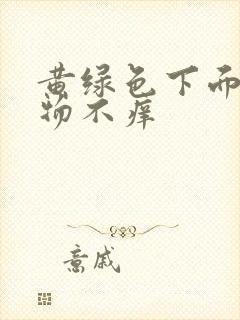 黄绿色下而
物不痒
意戚